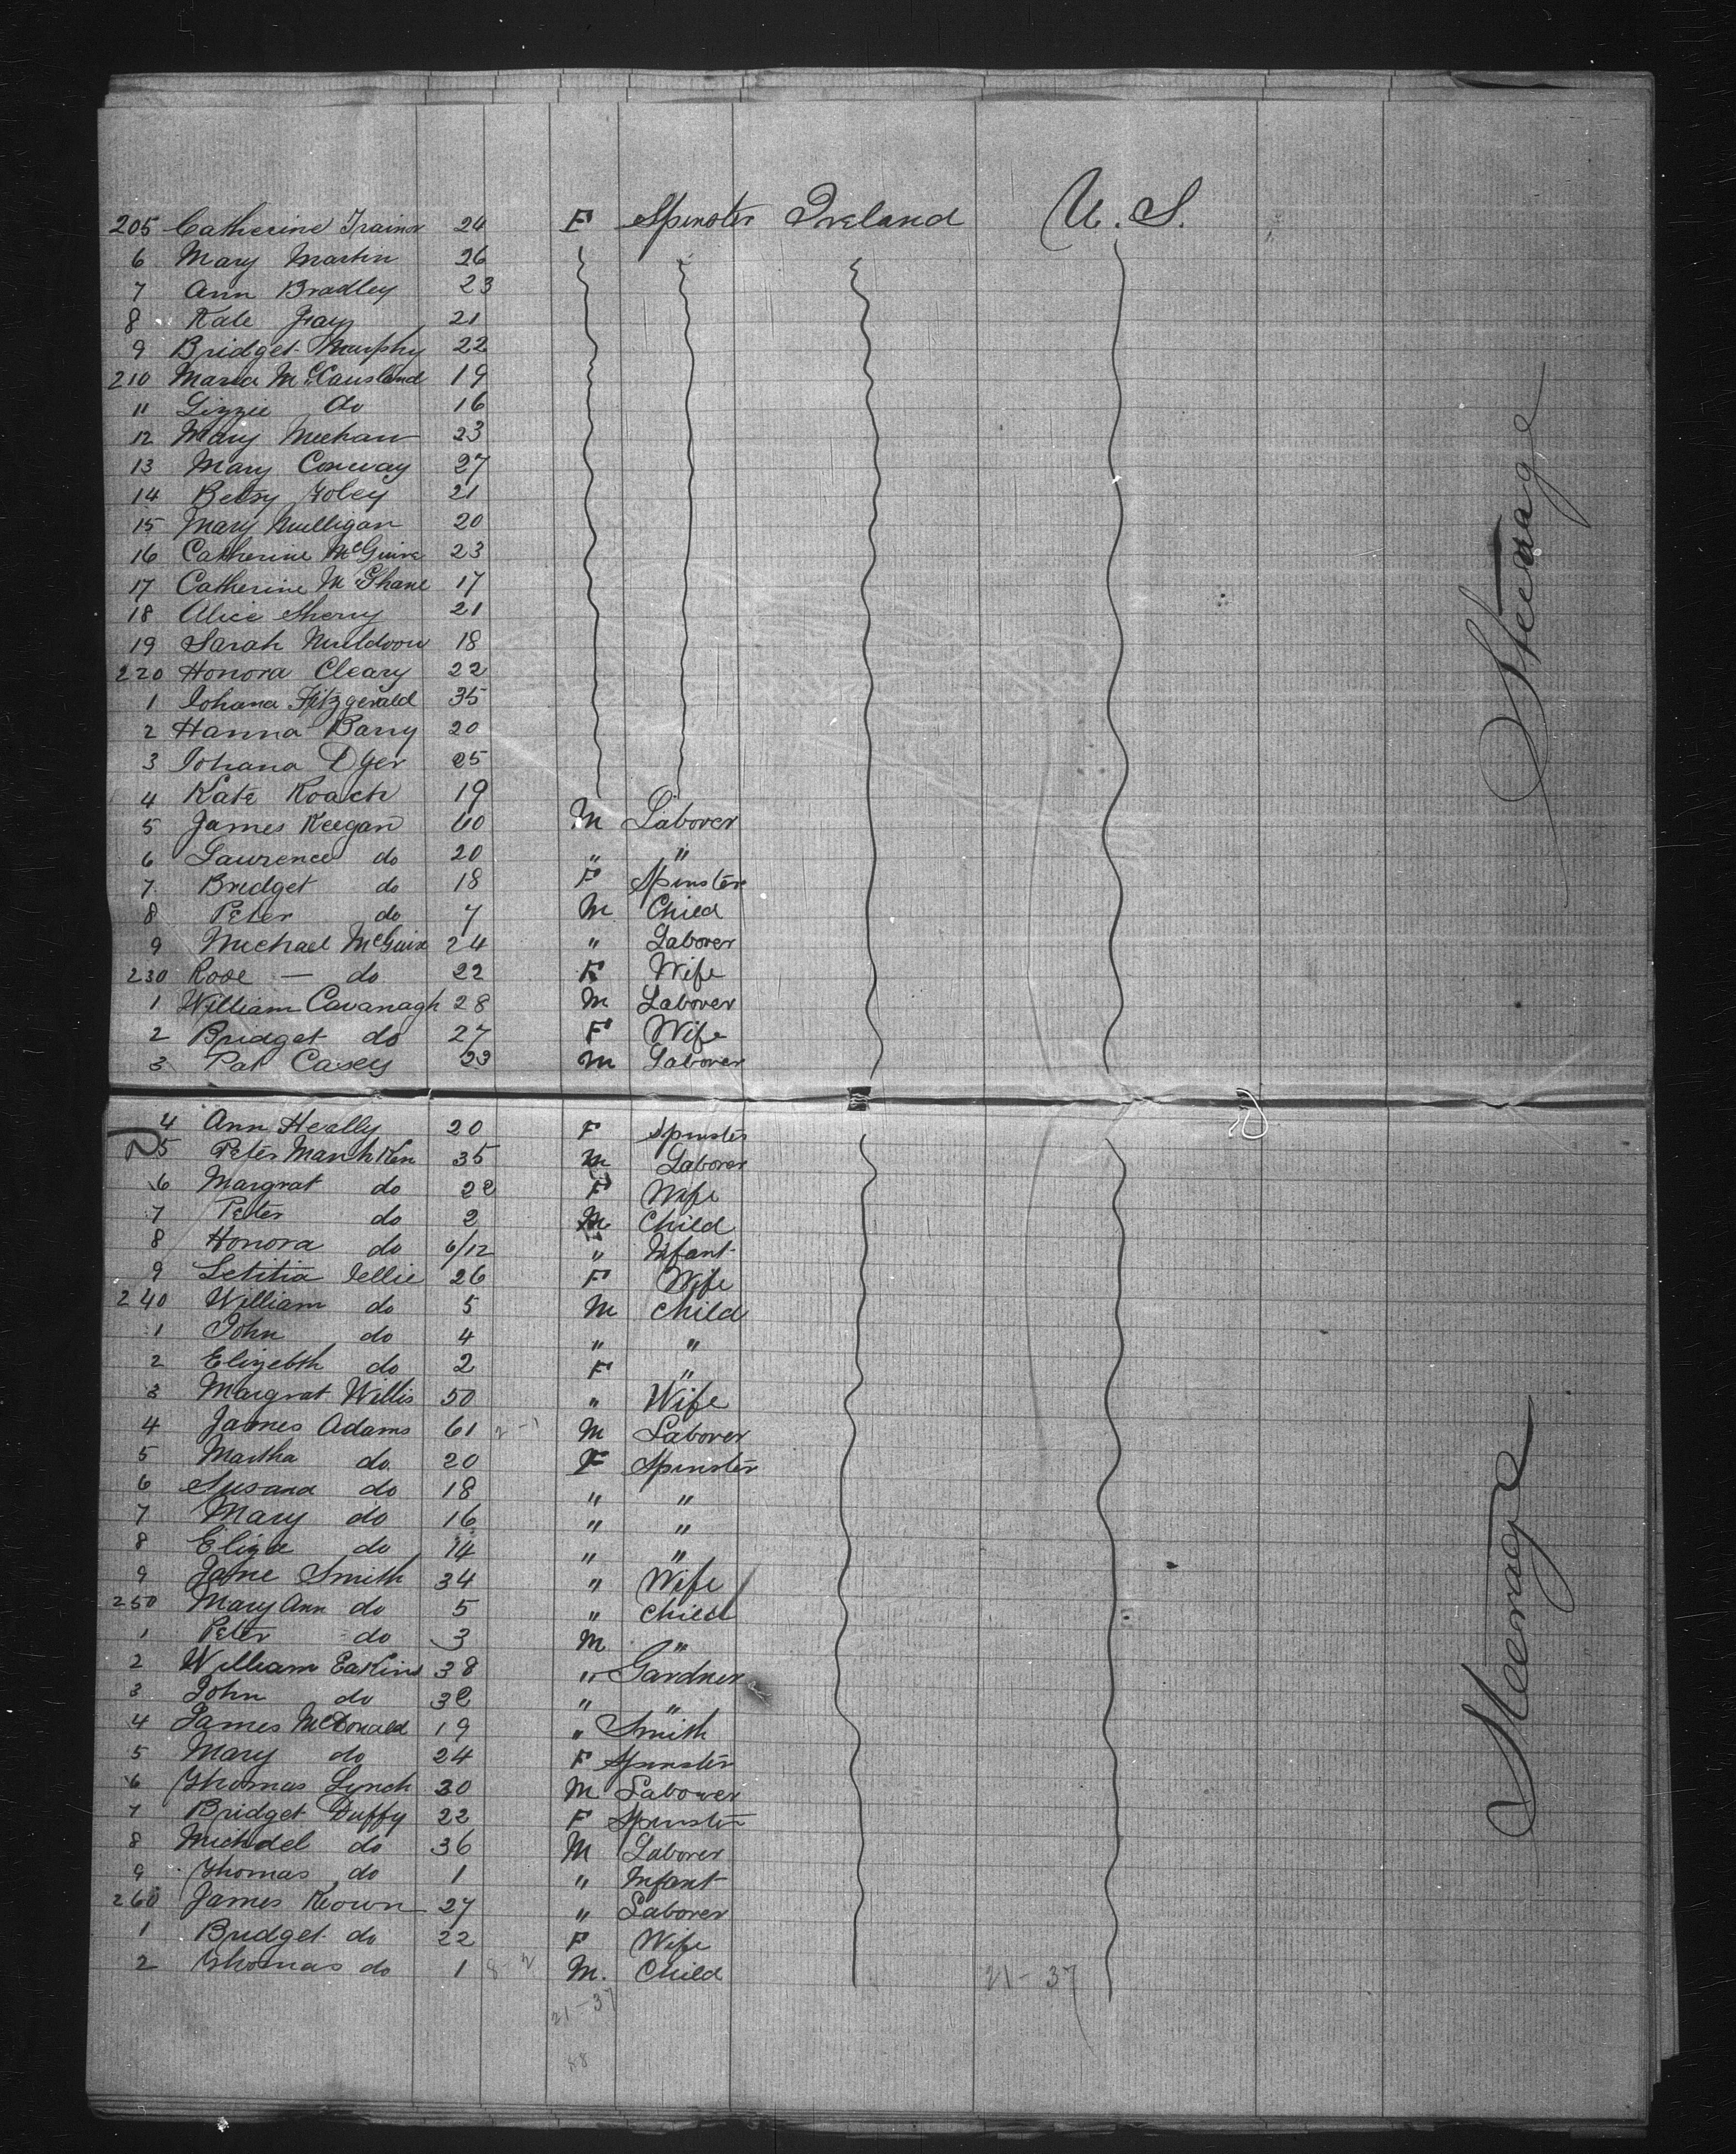 205 Catherine Trainor 24 F Spinster Ireland U.S.
6 Mary Martin 26
7 Ann Bradley 23
8 Kate Gray 21
9 Bridget Murphy 22
210 Maria McCausland 19
11 Lizzie do 16
12 Mary Meehan 23
13 Mary Conway 27
14 Betsy Foley 21
15 Mary Mulligan 20
16 Catherine McGuire 23
17 Catherine McShane 17
18 Alice Sherry 21
19 Sarah Muldoon 18
220 Honora Cleary 22
1 Johana Fitzgerald 35
2 Hanna Barry 20
3 Johana Dyer 25
4 Kate Roach 19
5 James Keegan 60 M Laborer
6 Laurence do 20 " "
7 Bridget do 18 F Spinster
8 Peter do 7 M Child
9 Michael McGuire 24 " Laborer
230 Rose — do 22 F Wife
1 William Cavanagh 28 M Laborer
2 Bridget do 27 F Wife
3 Pat Casey 23 M Laborer
Steerage
4 Ann Heally 20 F Spinster
5 Peter 35 M Laborer
6 Margrat do 22 F Wife
7 Peter do 2 M Child
8 Honora do 6/12 " Infant
9 Letitia Jellie 26 F Wife
240 William do 5 M Child
1 John do 4 " "
2 Elizebth do 2 F "
3 Margrat Willis 50 " Wife
4 James Adams 61 2-1 M Laborer
5 Martha do 20 F Spinster
6 Susana do 18 " "
7 Mary do 16 " "
8 Eliza do 14 " "
9 Jane Smith 34 " Wife
250 Mary Ann do 5 " Child
1 Peter do 3 M "
2 William Eakins 38 " Gardner
3 John do 32 " "
4 James McDonald 19 " Smith
5 Mary do 24 F Spinster
6 Thomas Lynch 30 M Laborer
7 Bridget Duffy 22 F Spinster
8 Michael do 36 M Laborer
9 Thomas do 1 " Infant
260 James Keown 27 " Laborer
1 Bridget do 22 F Wife
2 Thomas do 1 8-2 M. Child 21-37
21-37
Steerage